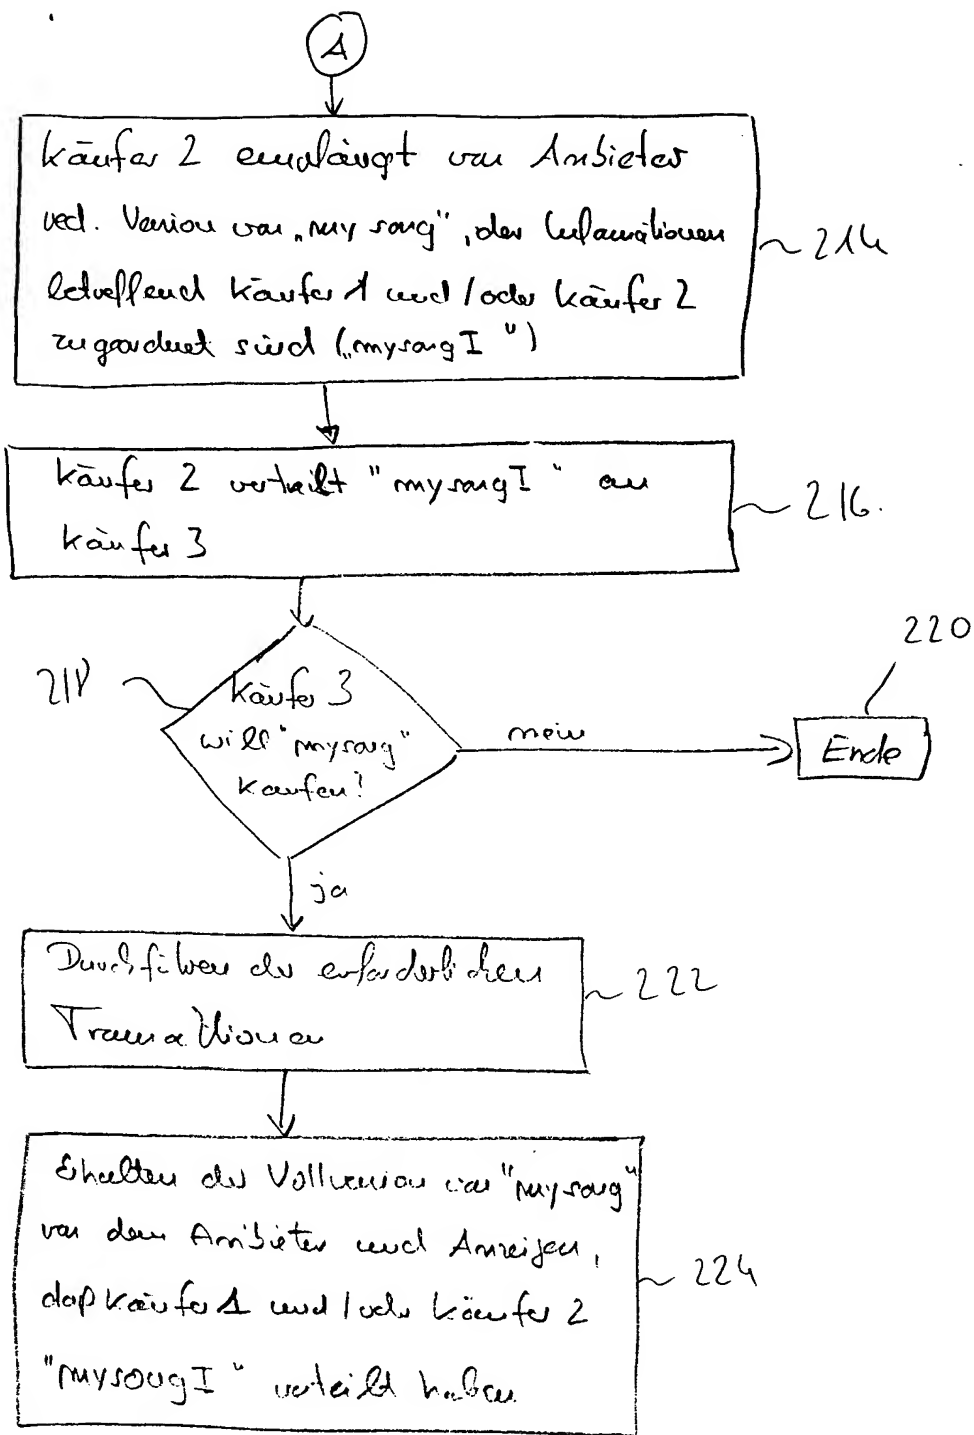 A
Käufer 2 empfängt von Anbieter
red. Version von „my song", der Informationen
betreffend Käufer 1 und / oder Käufer 2
zugeordnet sind („mysong I")
214
Käufer 2 verteilt "mysong I" an
Käufer 3
216.
218
Käufer 3
will "mysong"
kaufen?
nein
220
Ende
ja
Durchführen der erforderlichen
Transaktionen
222
Erhalten der Vollversion von "mysong"
von dem Anbieter und Anzeigen,
daß Käufer 1 und / oder Käufer 2
"mysong I" verteilt haben
224